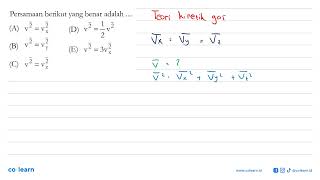 Persamaan berikut yang benar adalah ....
(A) v̄² = v̄ₓ²
(B) v̄² = v̄ᵧ²
(C) v̄² = v̄z²
(D) v̄² = 1/2 v̄²
(E) v̄² = 3v̄ₓ²
Teori kinetik gas
v̄x = v̄y = v̄z
v̄ = ?
v̄² = v̄x² + v̄y² + v̄z²
co learn
www.colearn.id
@colearn.id